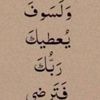 وَلَسَوفَ
يُعطيكَ
رَبُّكَ
فَتَرضى